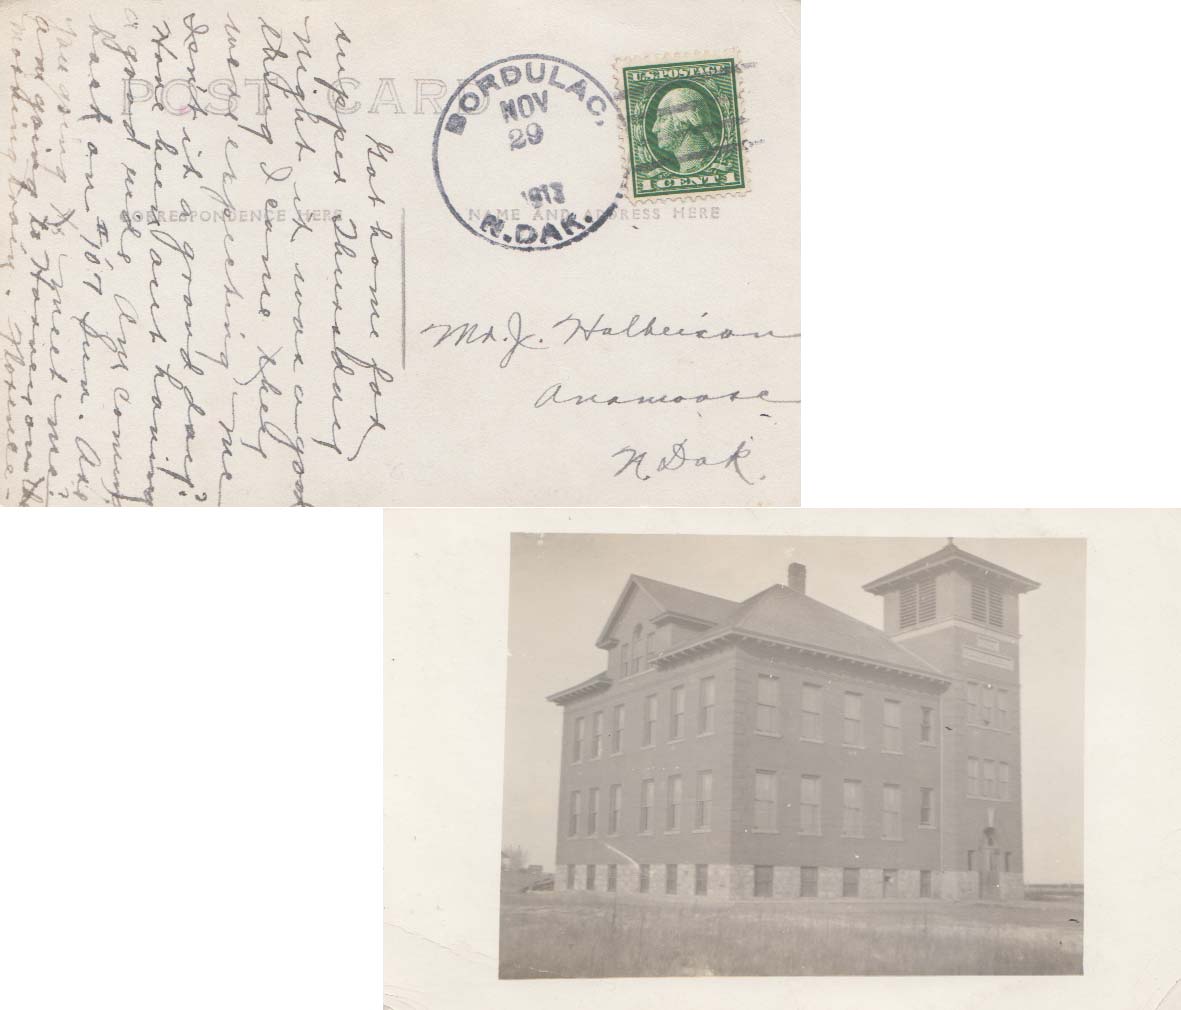 POST CARD
CORRESPONDENCE HERE
NAME AND ADDRESS HERE
BORDULAC,
NOV
29
1913
N. DAK.
U.S. POSTAGE
1 CENT 1
Mr. J. Halbeison
Anamoose
N. Dak.
Got home for
supper Thursday
night it was a good
thing I came they
were expecting me
Isn't it a grand day?
Home
a good Are coming
back on #107 Sun. Are
you going to meet me?
am going to
morning train.